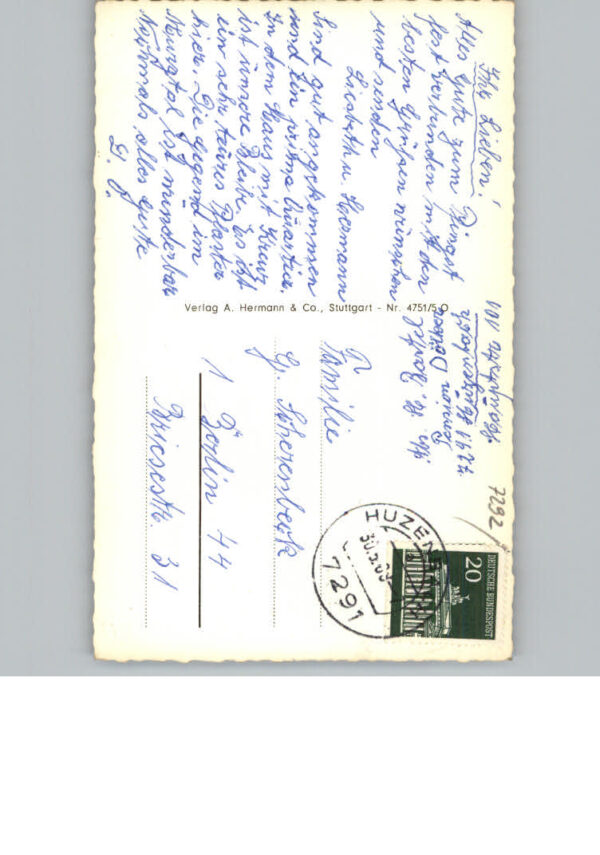 Ihr Lieben!
Alles Gute zum Pfingst
fest verbunden mit den
besten Grüßen wünschen
und senden
Lisbeth u. Hermann
Sind gut angekommen
und ein prima Quartier.
In dem Haus mit Kreuz
ist unsere Bleibe. Es ist
ein sehr teures Pflaster
hier. Die Gegend im
Murgtal ist wunderbar
Nochmals alles gute
D. O.
Verlag A. Hermann & Co., Stuttgart - Nr. 4751/5 O
7292
HUZEN
7291
20
DEUTSCHE BUNDESPOST
Familie
G. Scherenbeck
1 Berlin 44
Briesestr. 31